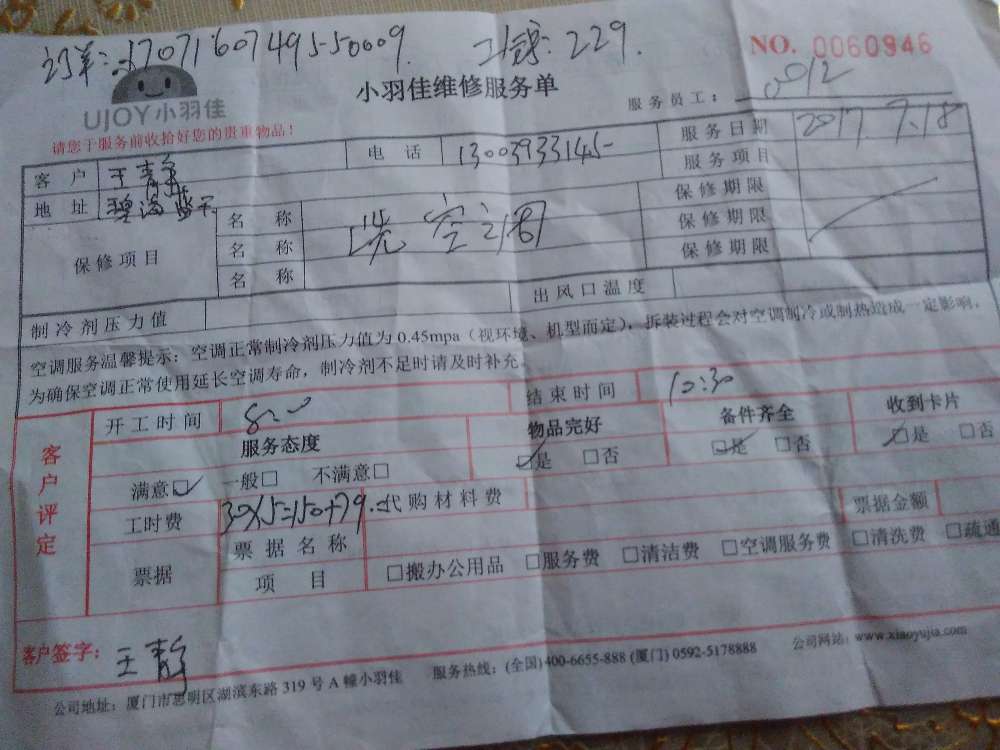 订单:17071607495-50009. 工钱:229.
NO. 0060946
UJOY小羽佳
小羽佳维修服务单
服务员工: 0012
请您于服务前收拾好您的贵重物品!
客户 王青争 电话 13003933145 服务日期 2017 9.18
地址 碧海蓝天 服务项目
保修项目 名称 洗空调 保修期限
名称 保修期限
名称 保修期限
制冷剂压力值 出风口温度
空调服务温馨提示:空调正常制冷剂压力值为 0.45mpa(视环境、机型而定),拆装过程会对空调制冷或制热造成一定影响。
为确保空调正常使用延长空调寿命,制冷剂不足时请及时补充。
客户评定
开工时间 结束时间 10:30
服务态度 物品完好 备件齐全 收到卡片
满意☑ 一般□ 不满意□ ☑是 □否 ☑是 □否 ☑是 □否
工时费 30X5=150+79. 代购材料费 票据金额
票据 票据名称
项目 □搬办公用品 □服务费 □清洁费 □空调服务费 □清洗费 □疏通
客户签字: 王青争
公司地址:厦门市思明区湖滨东路 319 号 A 幢小羽佳 服务热线:(全国)400-6655-888 (厦门) 0592-5178888 公司网站:www.xiaoyujia.com